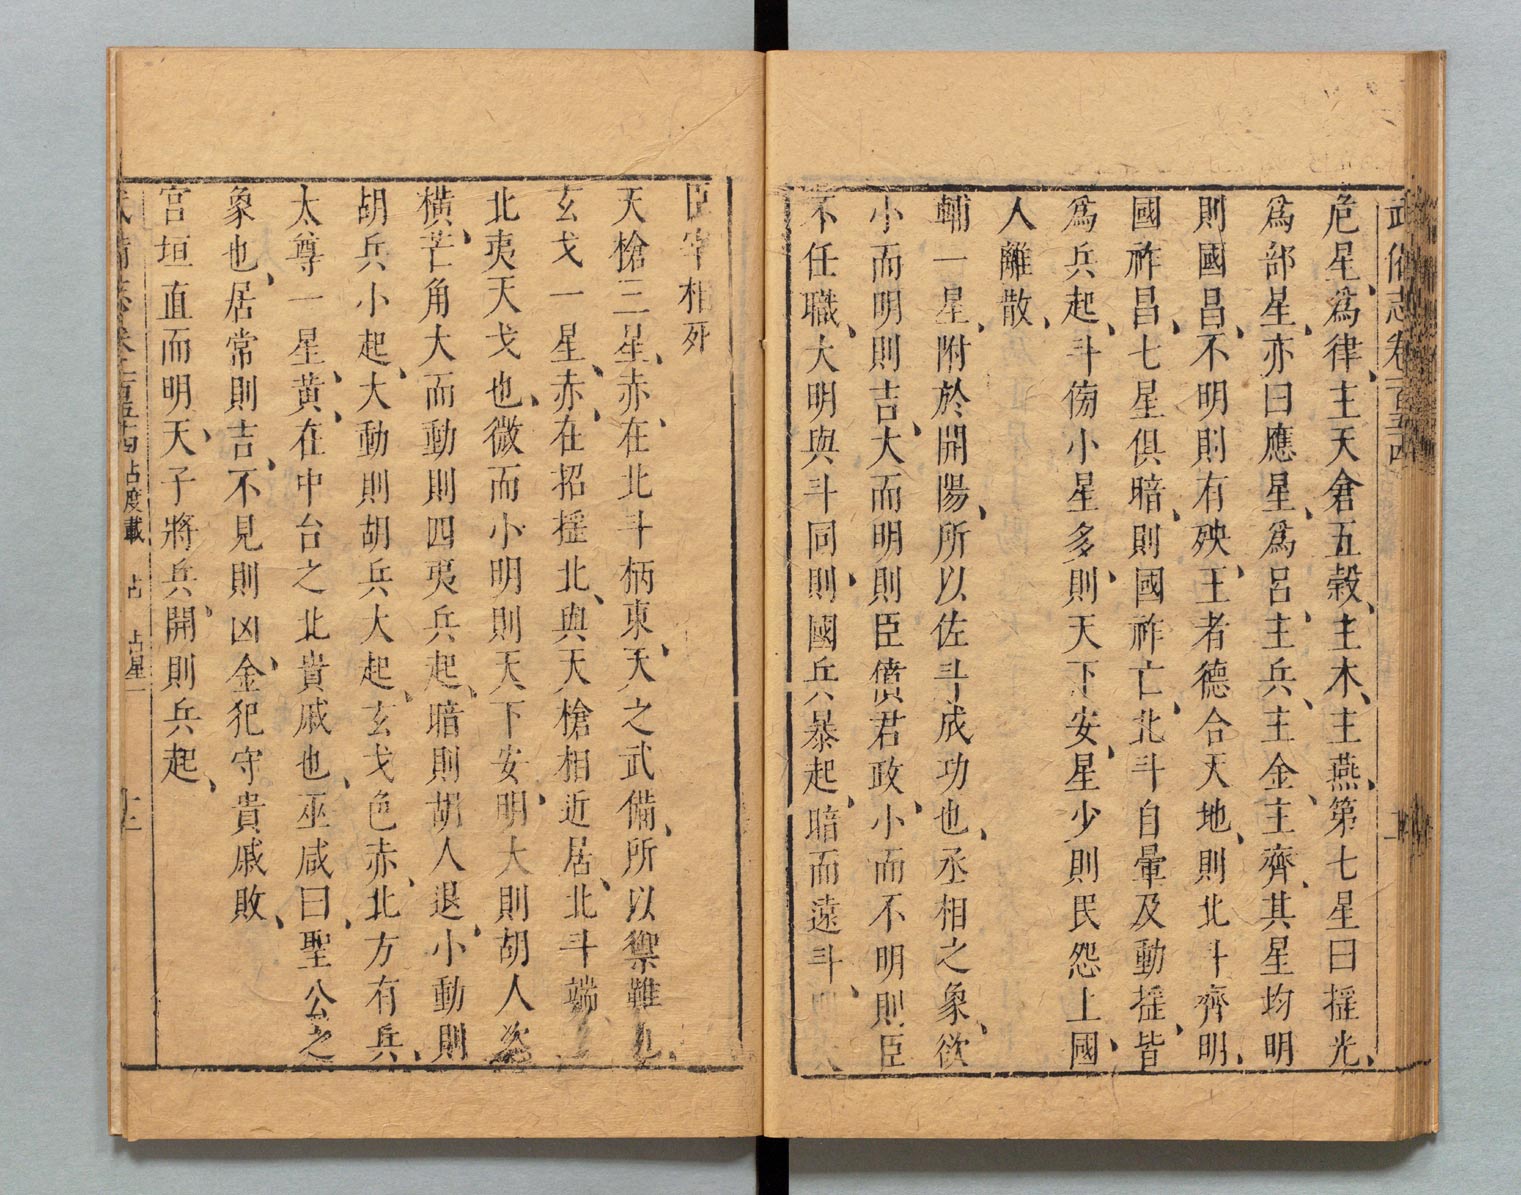 武備志卷一百五十四
危星、爲律、主天倉五穀、主木、主燕、第七星曰搖光、
爲部星、亦曰應星、爲呂、主兵、主金、主齊、其星均明
則國昌、不明則有殃、王者德合天地、則北斗齊明、
國祚昌、七星俱暗、則國祚亡、北斗自暈及動搖、皆
爲兵起、斗傍小星多、則天下安、星少則民怨上國、
人離散、
輔一星、附於開陽、所以佐斗成功也、丞相之象、欲
小而明則吉、大而明則臣僨君政、小而不明則臣
不任職、大明與斗同、則國兵暴起、暗而遠斗、
臣宰相死
天槍三星、赤、在北斗柄東、天之武備、所以禦難也、
玄戈一星、赤、在招搖北、與天槍相近居、北斗端
北夷天戈也、微而小明則天下安、明大則胡人
橫、芒角大而動則四夷兵起、暗則胡人退、小動則
胡兵小起、大動則胡兵大起、玄戈色赤、北方有兵、
太尊一星、黄、在中台之北貴戚也、巫咸曰、聖公之
象也、居常則吉、不見則凶、金犯守貴戚敗、
宮垣直而明天、子將兵、開則兵起、
武備志卷一百五十四 占度載 占 占星一